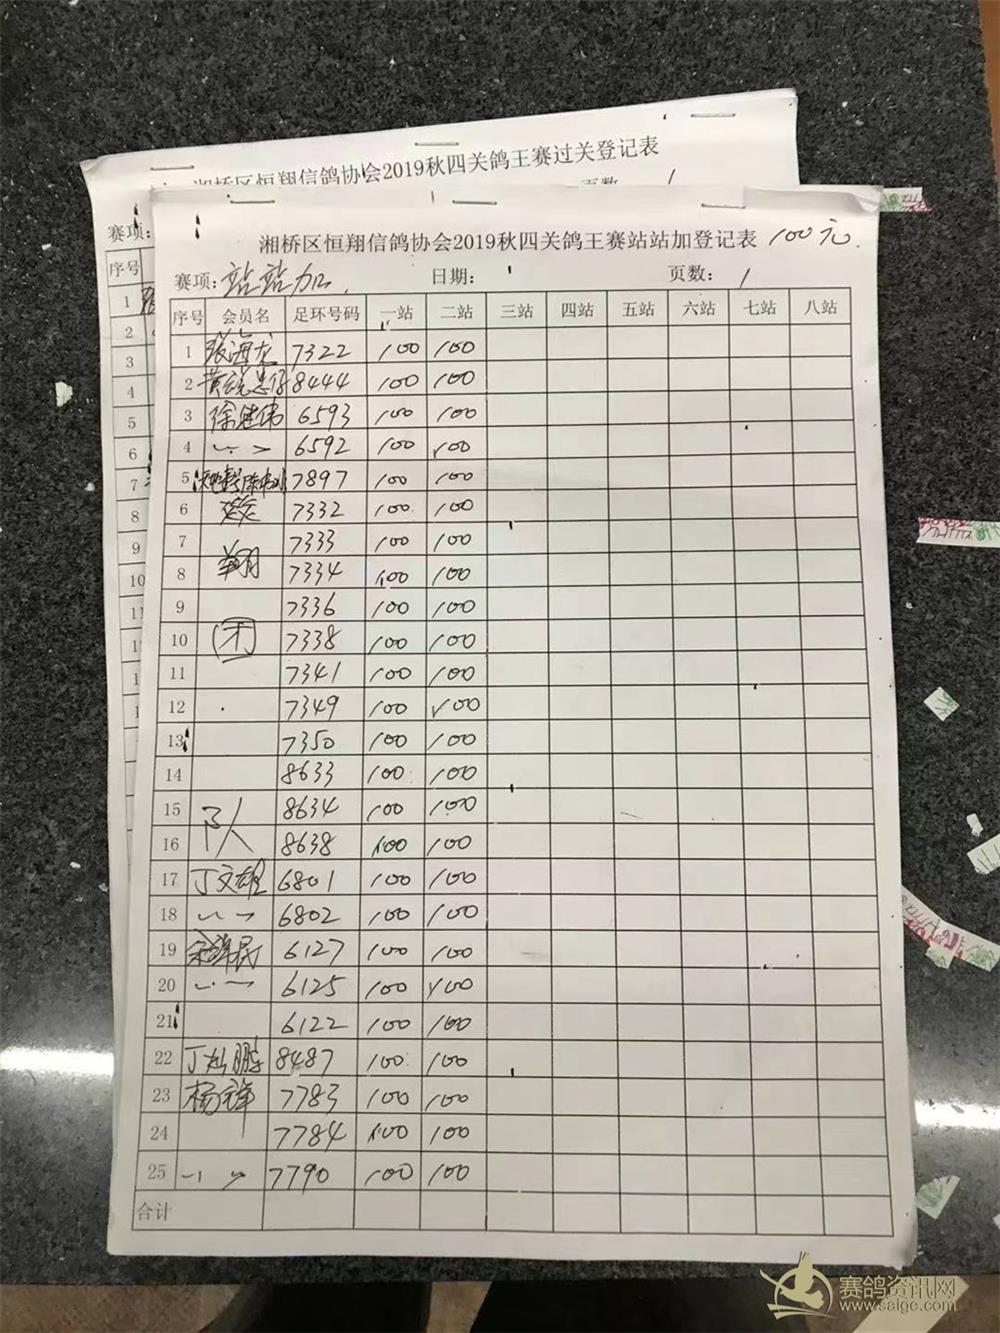 湘桥区恒翔信鸽协会2019秋四关鸽王赛过关登记表
页数 1
赛项:
序号
1
2
3
4
5
6
7
8
9
10
11
湘桥区恒翔信鸽协会2019秋四关鸽王赛站站加登记表 100元
赛项: 站站加 日期: 页数: 1
序号 会员名 足环号码 一站 二站 三站 四站 五站 六站 七站 八站
1 张海龙 7322 100 100
2 8444 100 100
3 徐建伟 6593 100 100
4 6592 100 100
5 7897 100 100
6 7332 100 100
7 7333 100 100
8 翔 7334 100 100
9 7336 100 100
10 7338 100 100
11 7341 100 100
12 7349 100 100
13 7350 100 100
14 8633 100 100
15 8634 100 100
16 队 8638 100 100
17 丁文雄 6801 100 100
18 6802 100 100
19 6127 100 100
20 6125 100 100
21 6122 100 100
22 丁灿鹏 8487 100 100
23 杨锋 7783 100 100
24 7784 100 100
25 7790 100 100
合计
赛鸽资讯网
www.saige.com